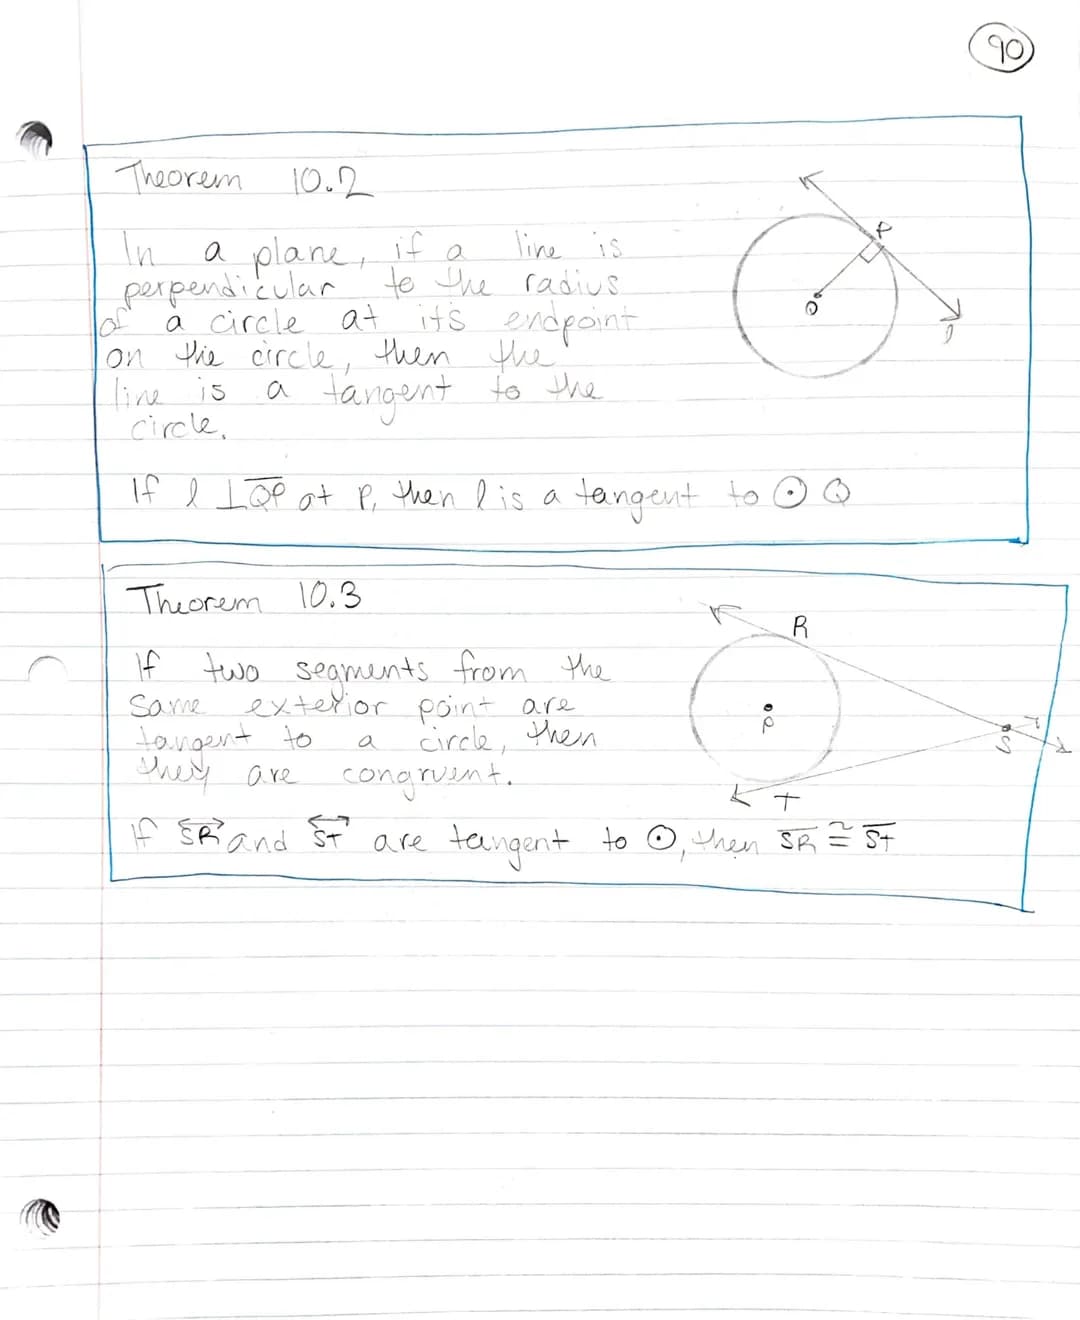 90
Theorem 10.2
In a plane, if a line is
perpendicular to the radius
of a circle at it's endpoint
on the circle, then the
line is a tangent to the
circle.
P
O
l
If l ⊥ Q̅P̅ at P, then l is a tangent to ⊙ Q
Theorem 10.3
If two segments from the
same exterior point are
tangent to a circle, then
they are congruent.
R
P
S
T
If S͡R and ST are tangent to ⊙, then S̅R̅ ≅ S̅T̅